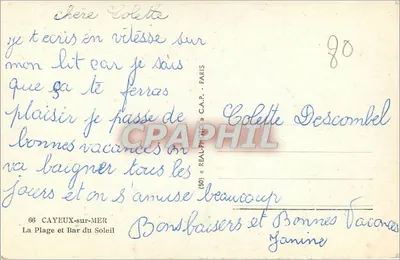 chere Colette
je t'ecris en vitesse sur
mon lit car je sais
que ça te ferras
plaisir je passe de
bonnes vacances on
va baigner tous les
jours et on s'amuse beaucoup
Bons baisers et Bonnes Vacances
Janine
80
Colette Descombel
(50) « REAL-PHOTO » C.A.P. - PARIS
CPARPHIL
66 CAYEUX-sur-MER
La Plage et Bar du Soleil